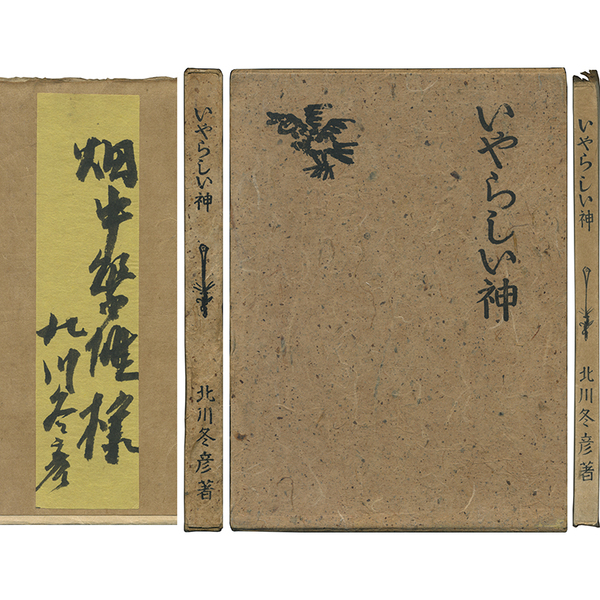 畑中繁雄様
北川冬彦
いやらしい神
北川冬彦著
いやらしい神
いやらしい神
北川冬彦著